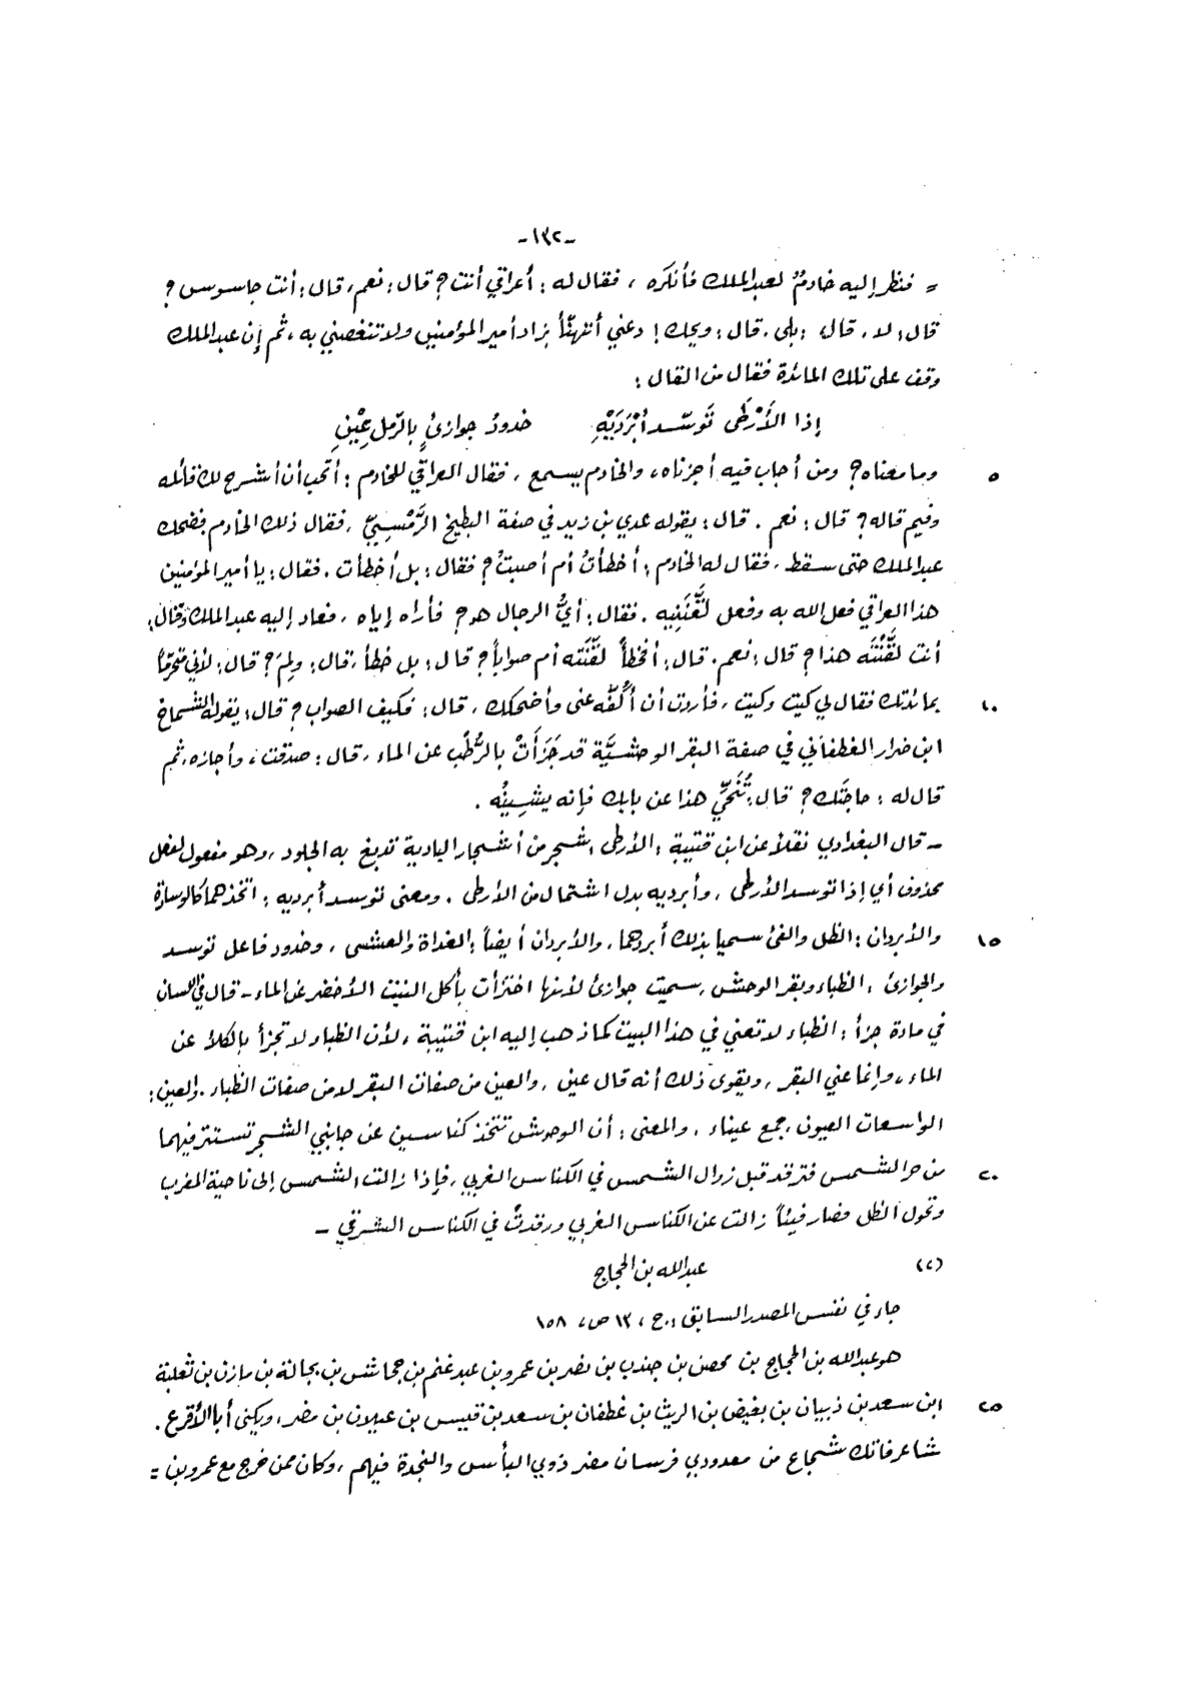 -١٣٢-
= فنظر إليه خادمٌ لعبد الملك فأنكره ، فقال له : أعراقي أنت؟ قال : نعم، قال : أنت جاسوس ؟
قال : لا ، قال : بلى ، قال : ويحك ! دعني أتهنّأ بزاد أمير المؤمنين ولا تنغصني به ، ثم إن عبد الملك
وقف على تلك المائدة فقال من القائل :
إذا الأَرْطَى تَوسّد أَبْرَدَيْهِ خدودُ جوازئٍ بالرّمل عِيْنِ
٥ وما معناه؟ ومن أجاب فيه أجزناه ، والخادم يسمع ، فقال العراقي للخادم : أتحب أن أشرح لك قائله
وفيم قاله؟ قال : نعم . قال : يقوله عدي بن زيد في صفة البطيخ الرَّمْسِيّ ، فقال ذلك الخادم فضحك
عبد الملك حتى سقط ، فقال له الخادم : أخطأتُ أم أصبتُ؟ فقال : بل أخطأت . فقال : يا أمير المؤمنين
هذا العراقي فعل الله به وفعل لَقَّنَنِيه . فقال : أيُّ الرجال هو؟ فأراه إياه ، فعاد إليه عبد الملك وقال :
أنت لَقَّنْتَه هذا؟ قال : نعم . قال : أفخطأً لقّنْتَه أم صواباً؟ قال : بل خطأ ، قال : ولِمَ؟ قال : لأني متحرّماً
١٠ بمائدتك فقال لي كيت وكيت ، فأردت أن أكُفّه عني وأضحكك ، قال : فكيف الصواب؟ قال : يقوله الشماخ
ابن ضرار الغطفاني في صفة البقر الوحشيَّة قد جَزَأَتْ بالرُّطْب عن الماء ، قال : صدقت ، وأجازه ، ثم
قال له : حاجتَك؟ قال : تُنَحِّي هذا عن بابك فإنه يشينُه .
- قال البغدادي نقلاً عن ابن قتيبة : الأرطى : شجر من أشجار البادية تدبغ به الجلود ، وهو مفعول لفعل
محذوف أي إذا توسد الأرطى ، وأبرديه بدل اشتمال من الأرطى . ومعنى توسد أبرديه : اتخذهما كالوسادة
١٥ والأبردان : الظل والفئ سميا بذلك لبردهما ، والأبردان أيضاً : الغداة والعشي ، وخدود فاعل توسد
والجوازئ : الظباء وبقر الوحش ، سميت جوازئ لأنها اجتزأت بأكل النبت الأخضر عن الماء - قال في اللسان
في مادة جزأ : الظباء لا تعني في هذا البيت كما ذهب إليه ابن قتيبة ، لأن الظباء لا تجزأ بالكلأ عن
الماء ، وإنما عنى البقر ، ويقوى ذلك أنه قال عين ، والعين من صفات البقر لا من صفات الظباء . والعين :
الواسعات العيون ، جمع عيناء ، والمعنى : أن الوحوش تتخذ كناسين عن جانبي الشجر تستتر فيهما
٢٠ من حر الشمس فترقد قبل زوال الشمس في الكناس الغربي ، فإذا زالت الشمس إلى ناحية المغرب
وتحول الظل فصار فيئاً زالت عن الكناس الغربي ورقدتْ في الكناس الشرقي -
(٢) عبد الله بن الحجاج
جاء في نفس المصدر السابق : ج ، ١٣ ص، ١٥٨
هو عبد الله بن الحجاج بن محصن بن جندب بن نصر بن عمرو بن عبد غنم بن جحاش بن بجالة بن مازن بن ثعلبة
٢٥ ابن سعد بن ذبيان بن بغيض بن الريث بن غطفان بن سعد بن قيس بن عيلان بن مضر ، ويكنى أبا الأقرع .
شاعر فاتك شجاع من معدودي فرسان مضر ذوي البأس والنجدة فيهم ، وكان ممن خرج مع عمرو بن =